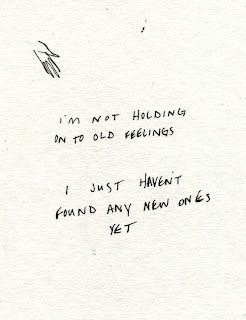 I'M NOT HOLDING
ON TO OLD FEELINGS
I JUST HAVEN'T
FOUND ANY NEW ONES
YET